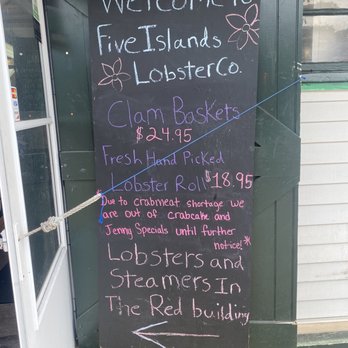 Welcome to
Five Islands
Lobster Co.
Clam Baskets
$24.95
Fresh Hand Picked
Lobster Roll $18.95
*Due to crabmeat shortage we
are out of crabcake and
Jenny Specials until further
notice!*
Lobsters and
Steamers In
The Red building